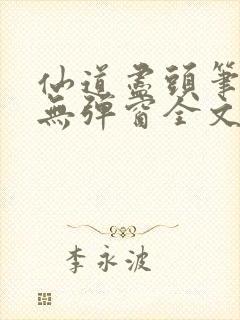 仙道盡頭筆
無彈窗全文
李永波